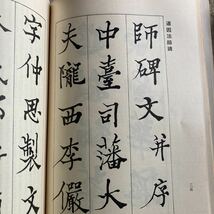 道因法師碑
師碑文并序
中臺司藩大
夫隴西李儼
字仲思製文